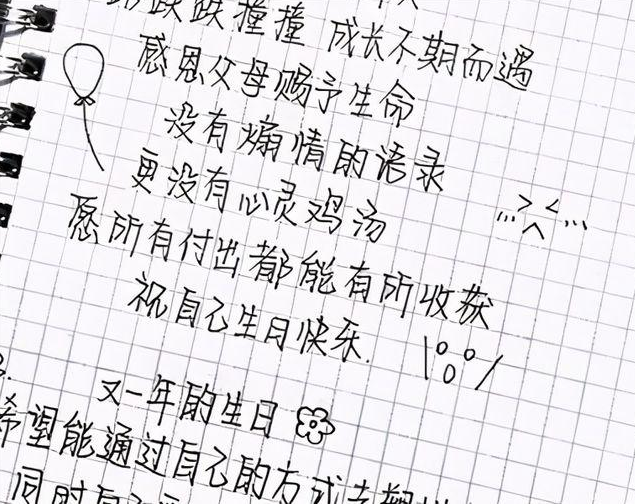 跌跌撞撞 成长不期而遇
感恩父母赐予生命
没有煽情的语录
更没有心灵鸡汤
愿所有付出都能有所收获
祝自己生日快乐.
又一年的生日
希望能通过自己的方式去
同时自己